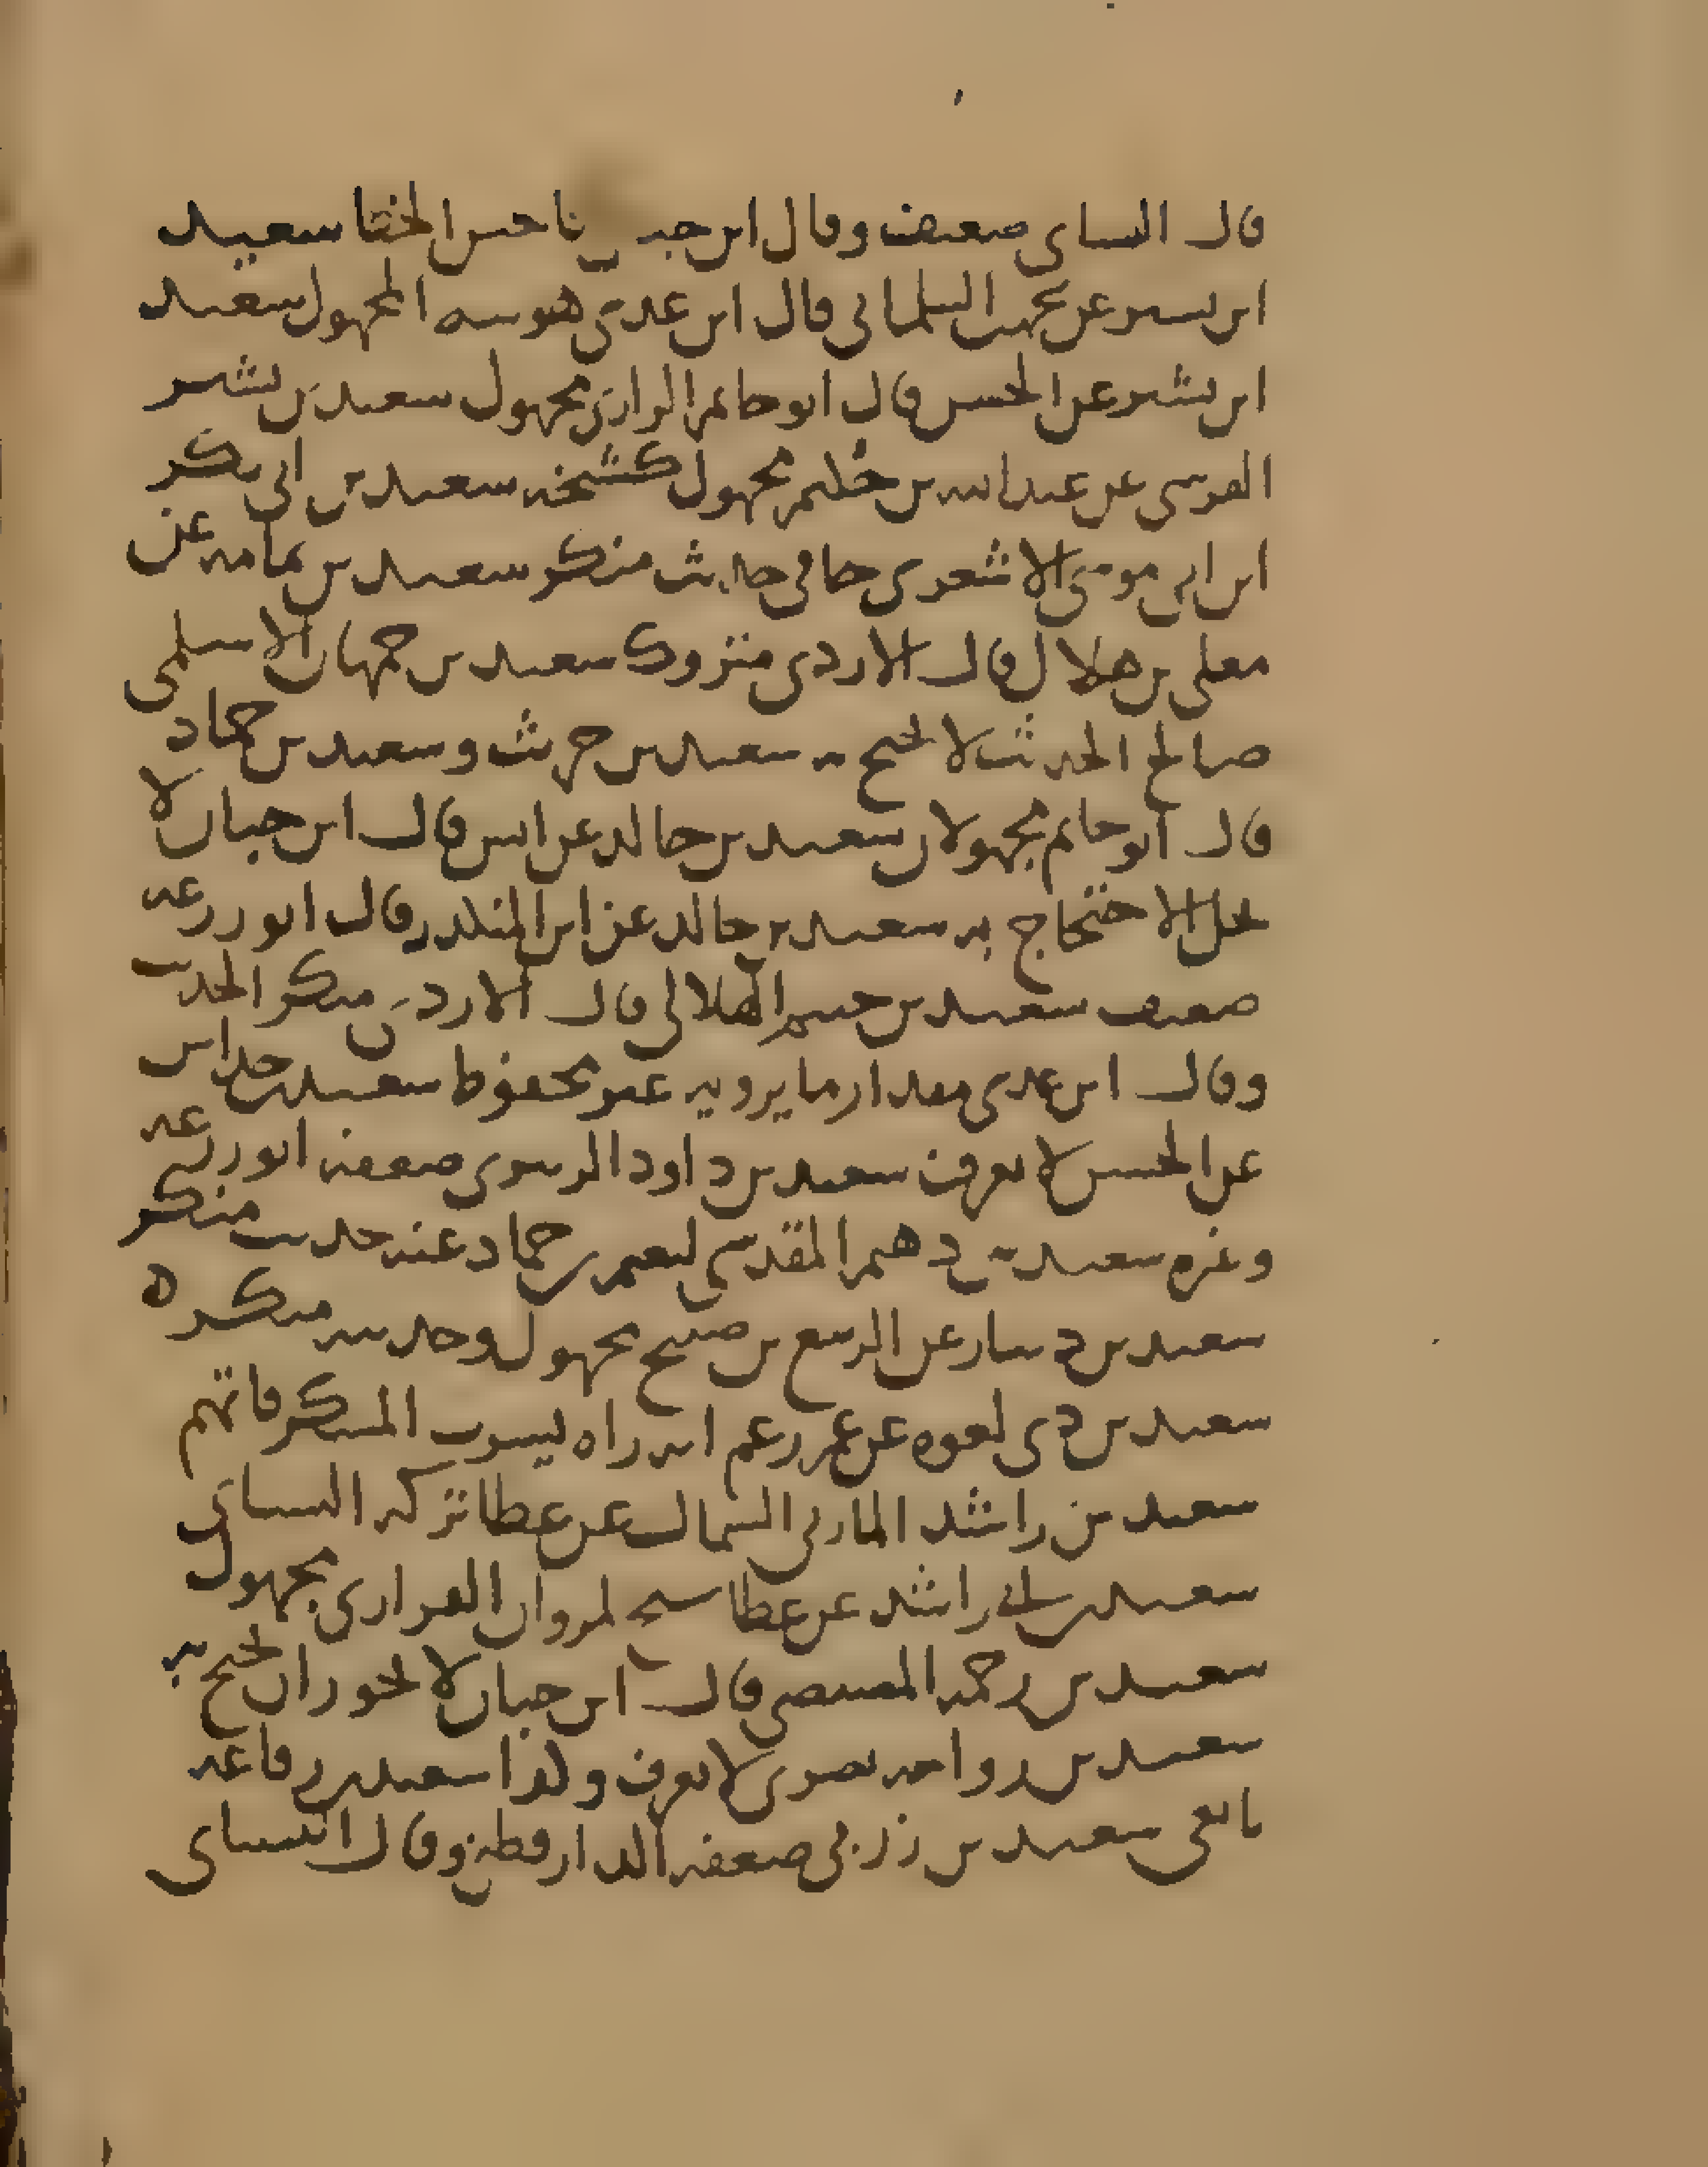 قال النساى ضعيف وقال ابن حبان فاحش الخطا سعيد
ابن بشير عن محمد بن البيلمانى قال ابن عدى هو شبه المجهول سعيد
ابن بشير عن الحسن قال ابو حاتم الرازى مجهول سعيد بن بشير
القرشى عن عبد الله بن حكيم مجهول كشيخه سعيد بن ابى بكر
ابن ابى موسى الاشعرى جا فى حديث منكر سعيد بن ثمامة عن
معلى بن هلال قال الازدى متروك سعيد بن جمهان الاسلمى
صالح الحديث لا يحتج به سعيد بن حريث وسعيد بن حماد
قال ابو حاتم مجهولان سعيد بن خالد عن انس قال ابن حبان لا
يحل الاحتجاج به سعيد بن خالد عن ابن المنكدر قال ابو زرعة
ضعيف سعيد بن خثيم الهلالى قال الازدى منكر الحديث
وقال ابن عدى مقدار ما يرويه غير محفوظ سعيد بن خداش
عن الحسن لا يعرف سعيد بن داود الزبيرى ضعفه ابو زرعة
وغيره سعيد بن دهم المقدسى لنعيم بن حماد عنه حديث منكر
سعيد بن دينار عن الربيع بن صبيح مجهول وحديثه منكر ه
سعيد بن ذى لعوه عن عمر زعم انه راه يشرب المسكر فاتهم
سعيد بن راشد المازنى السماك عن عطا تركه النساى
سعيد بن ابى راشد عن عطا شيخ لمروان الفزارى مجهول
سعيد بن رحمه المصيصى قال ابن حبان لا يجوز ان يحتج به
سعيد بن رواحه بصرى لا يعرف وكذا سعيد بن رفاعه
تابعى سعيد بن زربى ضعفه الدارقطنى وقال النساى